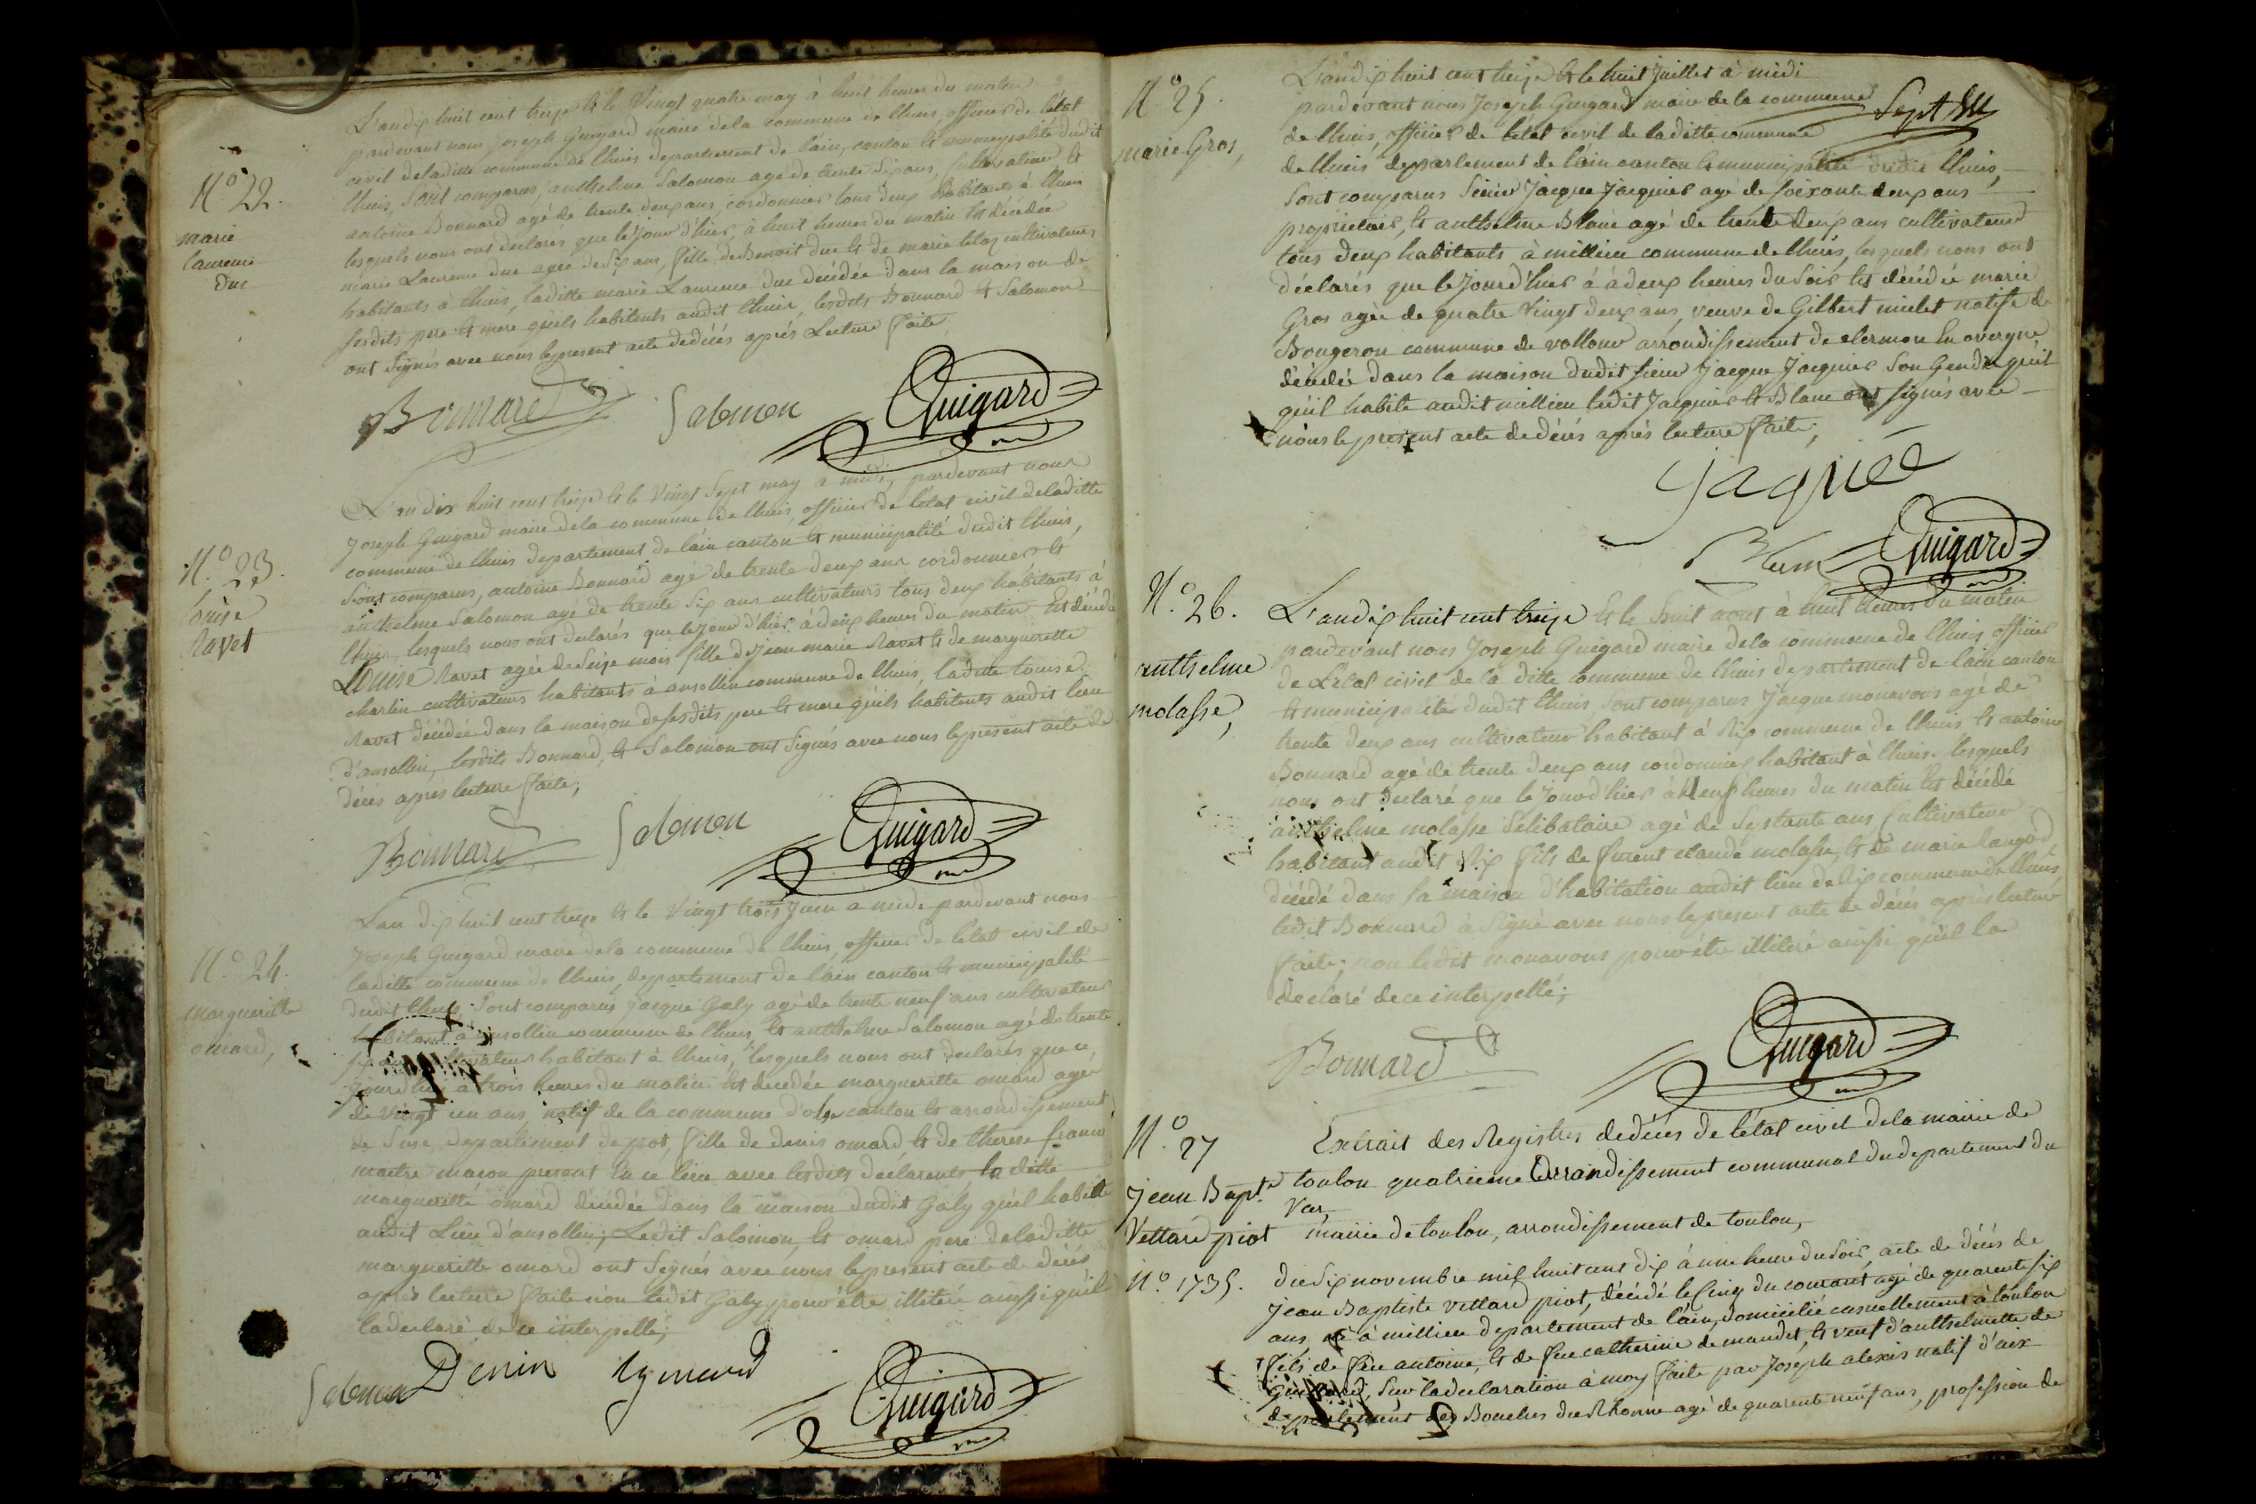 N.° 22.
marie
Laurence
Duc
L'an dix huit cent treize & le vingt quatre may à huit heures du matin
pardevant nous Joseph Guigard maire de la commune de lhuis, officier de l'état
civil de laditte commune de lhuis departement de l'ain, canton & municipalité dudit
lhuis, sont comparus, anthelme Salomon agé de trente six ans, cultivateur &
antoine Bonnard agé de trente deux ans, cordonnier tous deux habitants à lhuis
lesquels nous ont declarés que le jour d'hier, à huit heures du matin est décédée
marie Laurence duc agée de six ans, fille de Benoit duc & de marie cultivateurs
habitants à lhuis, laditte marie Laurence duc decédée dans la maison de
sesdits pere & mere qu'ils habitents audit lhuis, lesdits Bonnard & Salomon
ont signés avec nous le present acte de décés après Lecture faite
Bonnard Salomon Guigard
N.° 23.
Louise
Ravet
L'an dix huit cent treize & le vingt sept may à midi, pardevant nous
Joseph Guigard maire de la commune de lhuis, officier de l'état civil de laditte
commune de lhuis departement de l'ain canton & municipalité dudit lhuis,
sont comparus, antoine Bonnard agé de trente deux ans cordonnier &
anthelme Salomon agé de trente six ans cultivateurs tous deux habitants à
lhuis, lesquels nous ont declarés que le jour d'hier à deux heures du matin est décédée
Louise Ravet agée de seize mois fille de Jean marie Ravet & de marguerite
charlin cultivateurs habitants à ansollin commune de lhuis, laditte Louise
Ravet décédée dans la maison de sesdits pere & mere qu'ils habitents audit lieu
d'ansollin, lesdits Bonnard, & Salomon ont signés avec nous le present acte de
décés après lecture faite;
Bonnard Salomon Guigard
N.° 24.
margueritte
omard,
L'an dix huit cent treize & le vingt trois Juin à midi pardevant nous
Joseph Guigard maire de la commune de lhuis, officier de l'état civil de
laditte commune de lhuis, departement de l'ain canton & municipalité
dudit lhuis sont comparus Jacque Galy agé de trente neuf ans cultivateur
habitant à ansollin commune de lhuis, & anthelme Salomon agé de trente
six cultivateur habitant à lhuis, lesquels nous ont declarés que ce
jourd'hui à trois heures du matin est decédée margueritte omard agée
de vingt un ans, natif de la commune d' canton & arrondissement
de Suse, departement de pot, fille de denis omard & de therese franco
maitre maçon present en ce lieu avec lesdits déclarents, la ditte
marguerite omard décédée dans la maison dudit Galy qu'il habitte
audit Lieu d'ansollin; Ledit Salomon, & omard pere de laditte
marguerite omard ont signés avec nous le present acte de décés
après lecture faite non ledit Galy pour être illitéré ainsi qu'il
la declaré de ce interpellé;
Salomon Denin Guigard
N.° 25.
marie Gros,
L'an dix huit cent treize & le huit juillet à midi
pardevant nous Joseph Guigard maire de la commune
de lhuis, officier de l'état civil de laditte commune
de lhuis departement de l'ain canton & municipalité dudit lhuis,
sont comparus sieur Jacque Jacquier agé de soixante deux ans
proprietaire, & anthelme Blanc agé de trente deux ans cultivateur
tous deux habitants à millieu commune de lhuis, lesquels nous ont
déclarés que le jourd'hier à à deux heures du soir est décédée marie
Gros agée de quatre vingt deux ans, veuve de Gilbert miolet native de
Bongeron commune de vollour arrondissement de clermon en overgne
décédée dans la maison dudit sieur Jacque Jacquier son Gendre qu'il
qu'il habite audit millieu ledit Jacquier & Blanc ont signés avec
nous le present acte de décés après lecture faite;
Jaquié
Guigard
N.° 26.
anthelme
molasse,
L'an dix huit cent treize & le huit aout à huit heures du matin
pardevant nous Joseph Guigard maire de la commune de lhuis officier
de L'état civil de la ditte commune de lhuis departement de l'ain canton
& municipalité dudit lhuis, sont comparus Jacque monavous agé de
trente deux ans cultivateur habitant à Rix commune de lhuis & antoine
Bonnard agé de trente deux ans cordonnier habitant à lhuis. lesquels
nous ont declaré que le jourd'hier à neuf heures du matin est décédé
anthelme molasse Selibataire agé de septante ans cultivateur
habitant audit Rix fils de furent claude molasse, & de marie
décédé dans sa maison d'habitation audit lieu de Rix commune de lhuis,
ledit Bonnard à signé avec nous le present acte de décés après lecture
faite; non ledit monavous pour être illitéré ainsi qu'il la
declaré de ce interpellé;
Bonnard Guigard
N.° 27
Jean Bap.te
Vettard piot
N.° 1735.
Extrait des Registres de décés de l'état civil de la mairie de
toulon quatrieme Arrondissement communal du departement du
Var,
mairie de toulon, arrondissement de toulon,
du six novembre mil huit cent dix à une heure du soir, acte de décés de
Jean Baptiste vettard piot, décédé le cinq du courant agé de quarente six
ans, né à millieu departement de l'ain, domicilié casuellement à toulon
fils de feu antoine, & de feu catherine de mandet, & veuf d'anthelmette de
sur la declaration à moy faite par Joseph alexis natif d'aix
departement des Bouches du Rhonne agé de quarente neuf ans, profession de